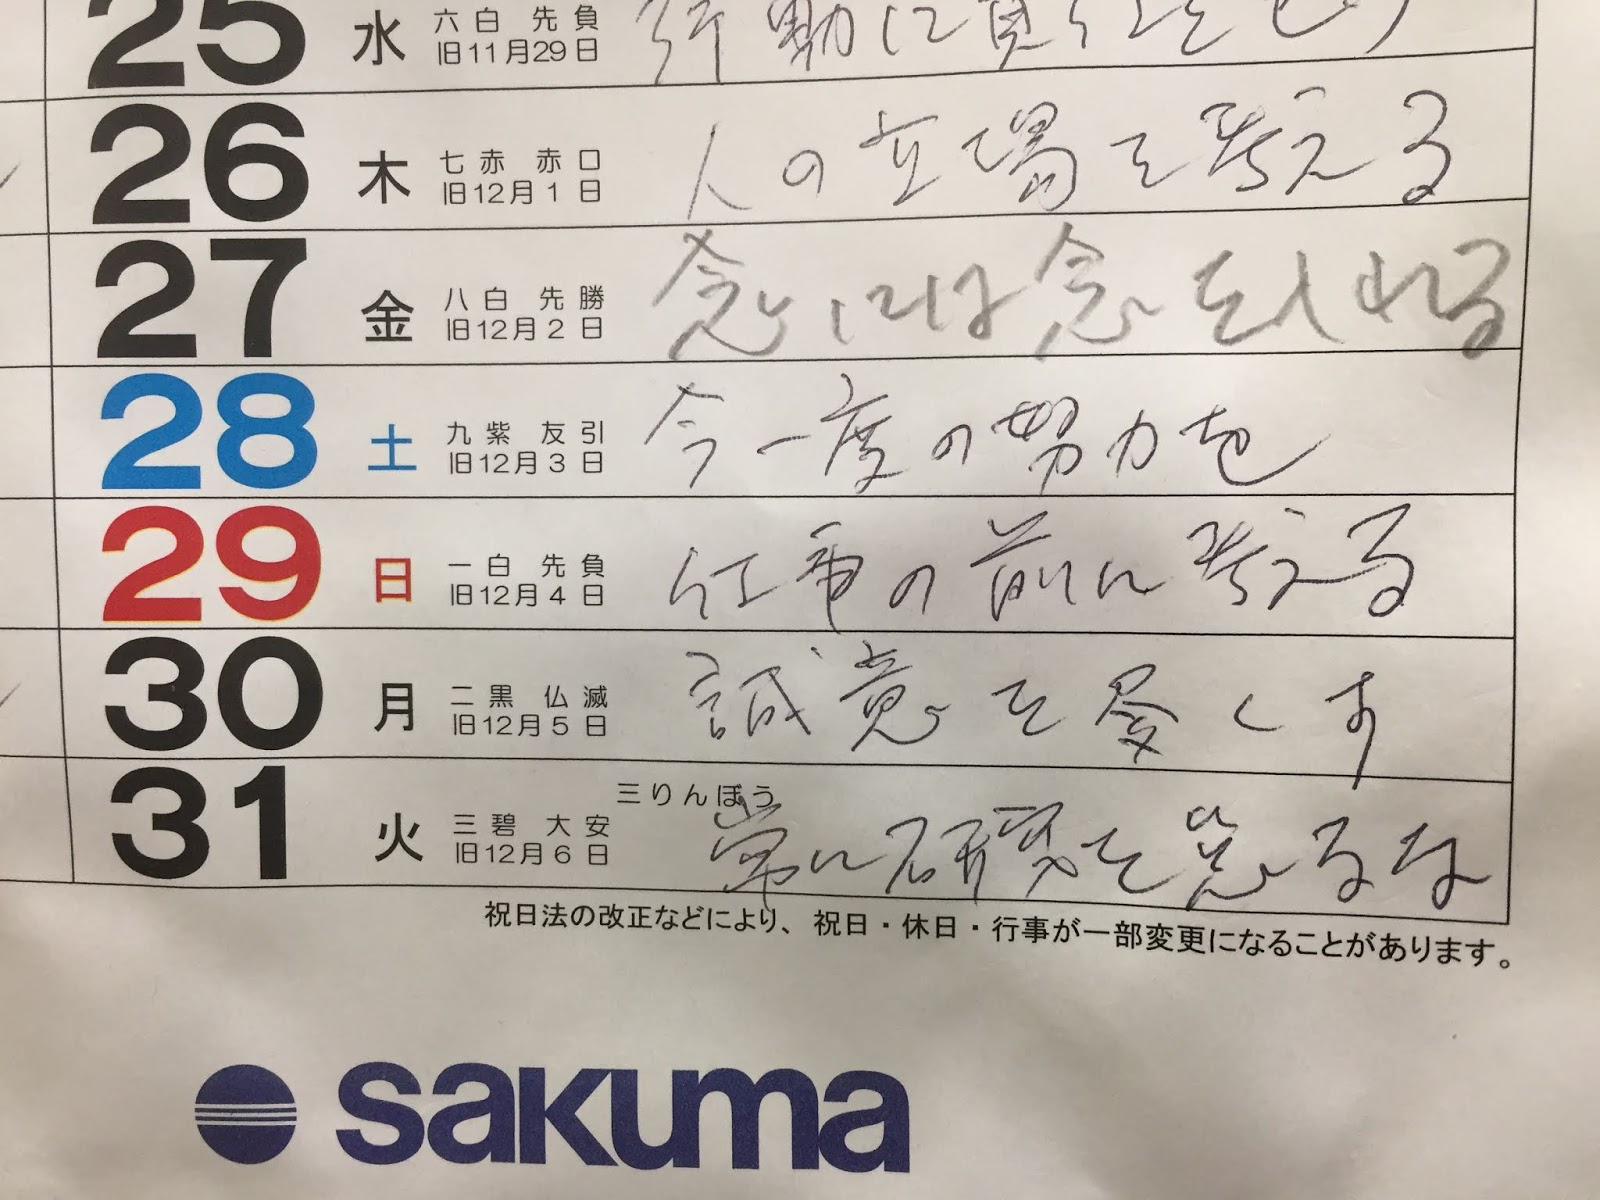 25 水 六白 先負 旧11月29日 行動に責任をもつ
26 木 七赤 赤口 旧12月1日 人の立場で考える
27 金 八白 先勝 旧12月2日 念には念を入れる
28 土 九紫 友引 旧12月3日 今一度の努力を
29 日 一白 先負 旧12月4日 仕事の前に考える
30 月 二黒 仏滅 旧12月5日 誠意を尽くす
31 火 三碧 大安 旧12月6日 三りんぼう 常に研究を怠るな
祝日法の改正などにより、祝日・休日・行事が一部変更になることがあります。
sakuma